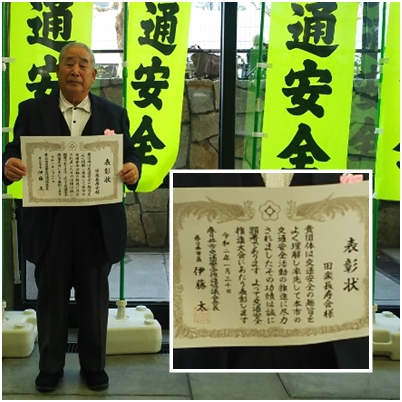 通安全
通安全
通安全
通安全
表彰状
田楽長寿会様
貴団体は交通安全の趣旨を
よく理解し率先して本市の
交通安全活動の推進に尽力
されましたその功績は誠に
顕著であります よって交通安全
推進大会にあたり表彰します
令和二年一月二十日
春日井市交通安全推進協議会会長
春日井市長 伊藤 太